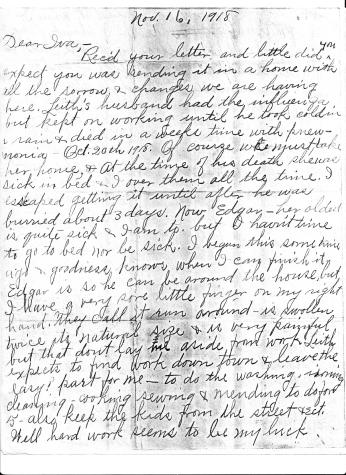 Nov. 16, 1918
Dear Iva,
Rec'd your letter and little did you
expect you was sending it in a home with
all the sorrow, & changes we are having
here. Leith's husband had the influenza,
but kept on working until he took cold in
a rain & died in a weeks time with pnew-
monia - Oct. 20th 1918. Of course we must take
her home, & at the time of his death she was
sick in bed & I over them all the time. I
escaped getting it until after he was
buried about 3 days. Now, Edgar - her oldest
is quite sick & I am up. but I havn't time
to go to bed nor be sick. I began this some time
ago & goodness knows when I can finish it,
Edgar is so he can be around the house, but
I have a very sore little finger on my right
hand. They call it run around - is swollen
twice its natural size & is very painful,
but that dont lay me aside from work. Leith
expects to find work down town & leave the
easy? part for me - to do the washing - ironing
cleaning - cooking sewing & mending to do for
5 - also keep the kids from the street & ect.
Well hard work seems to be my luck.